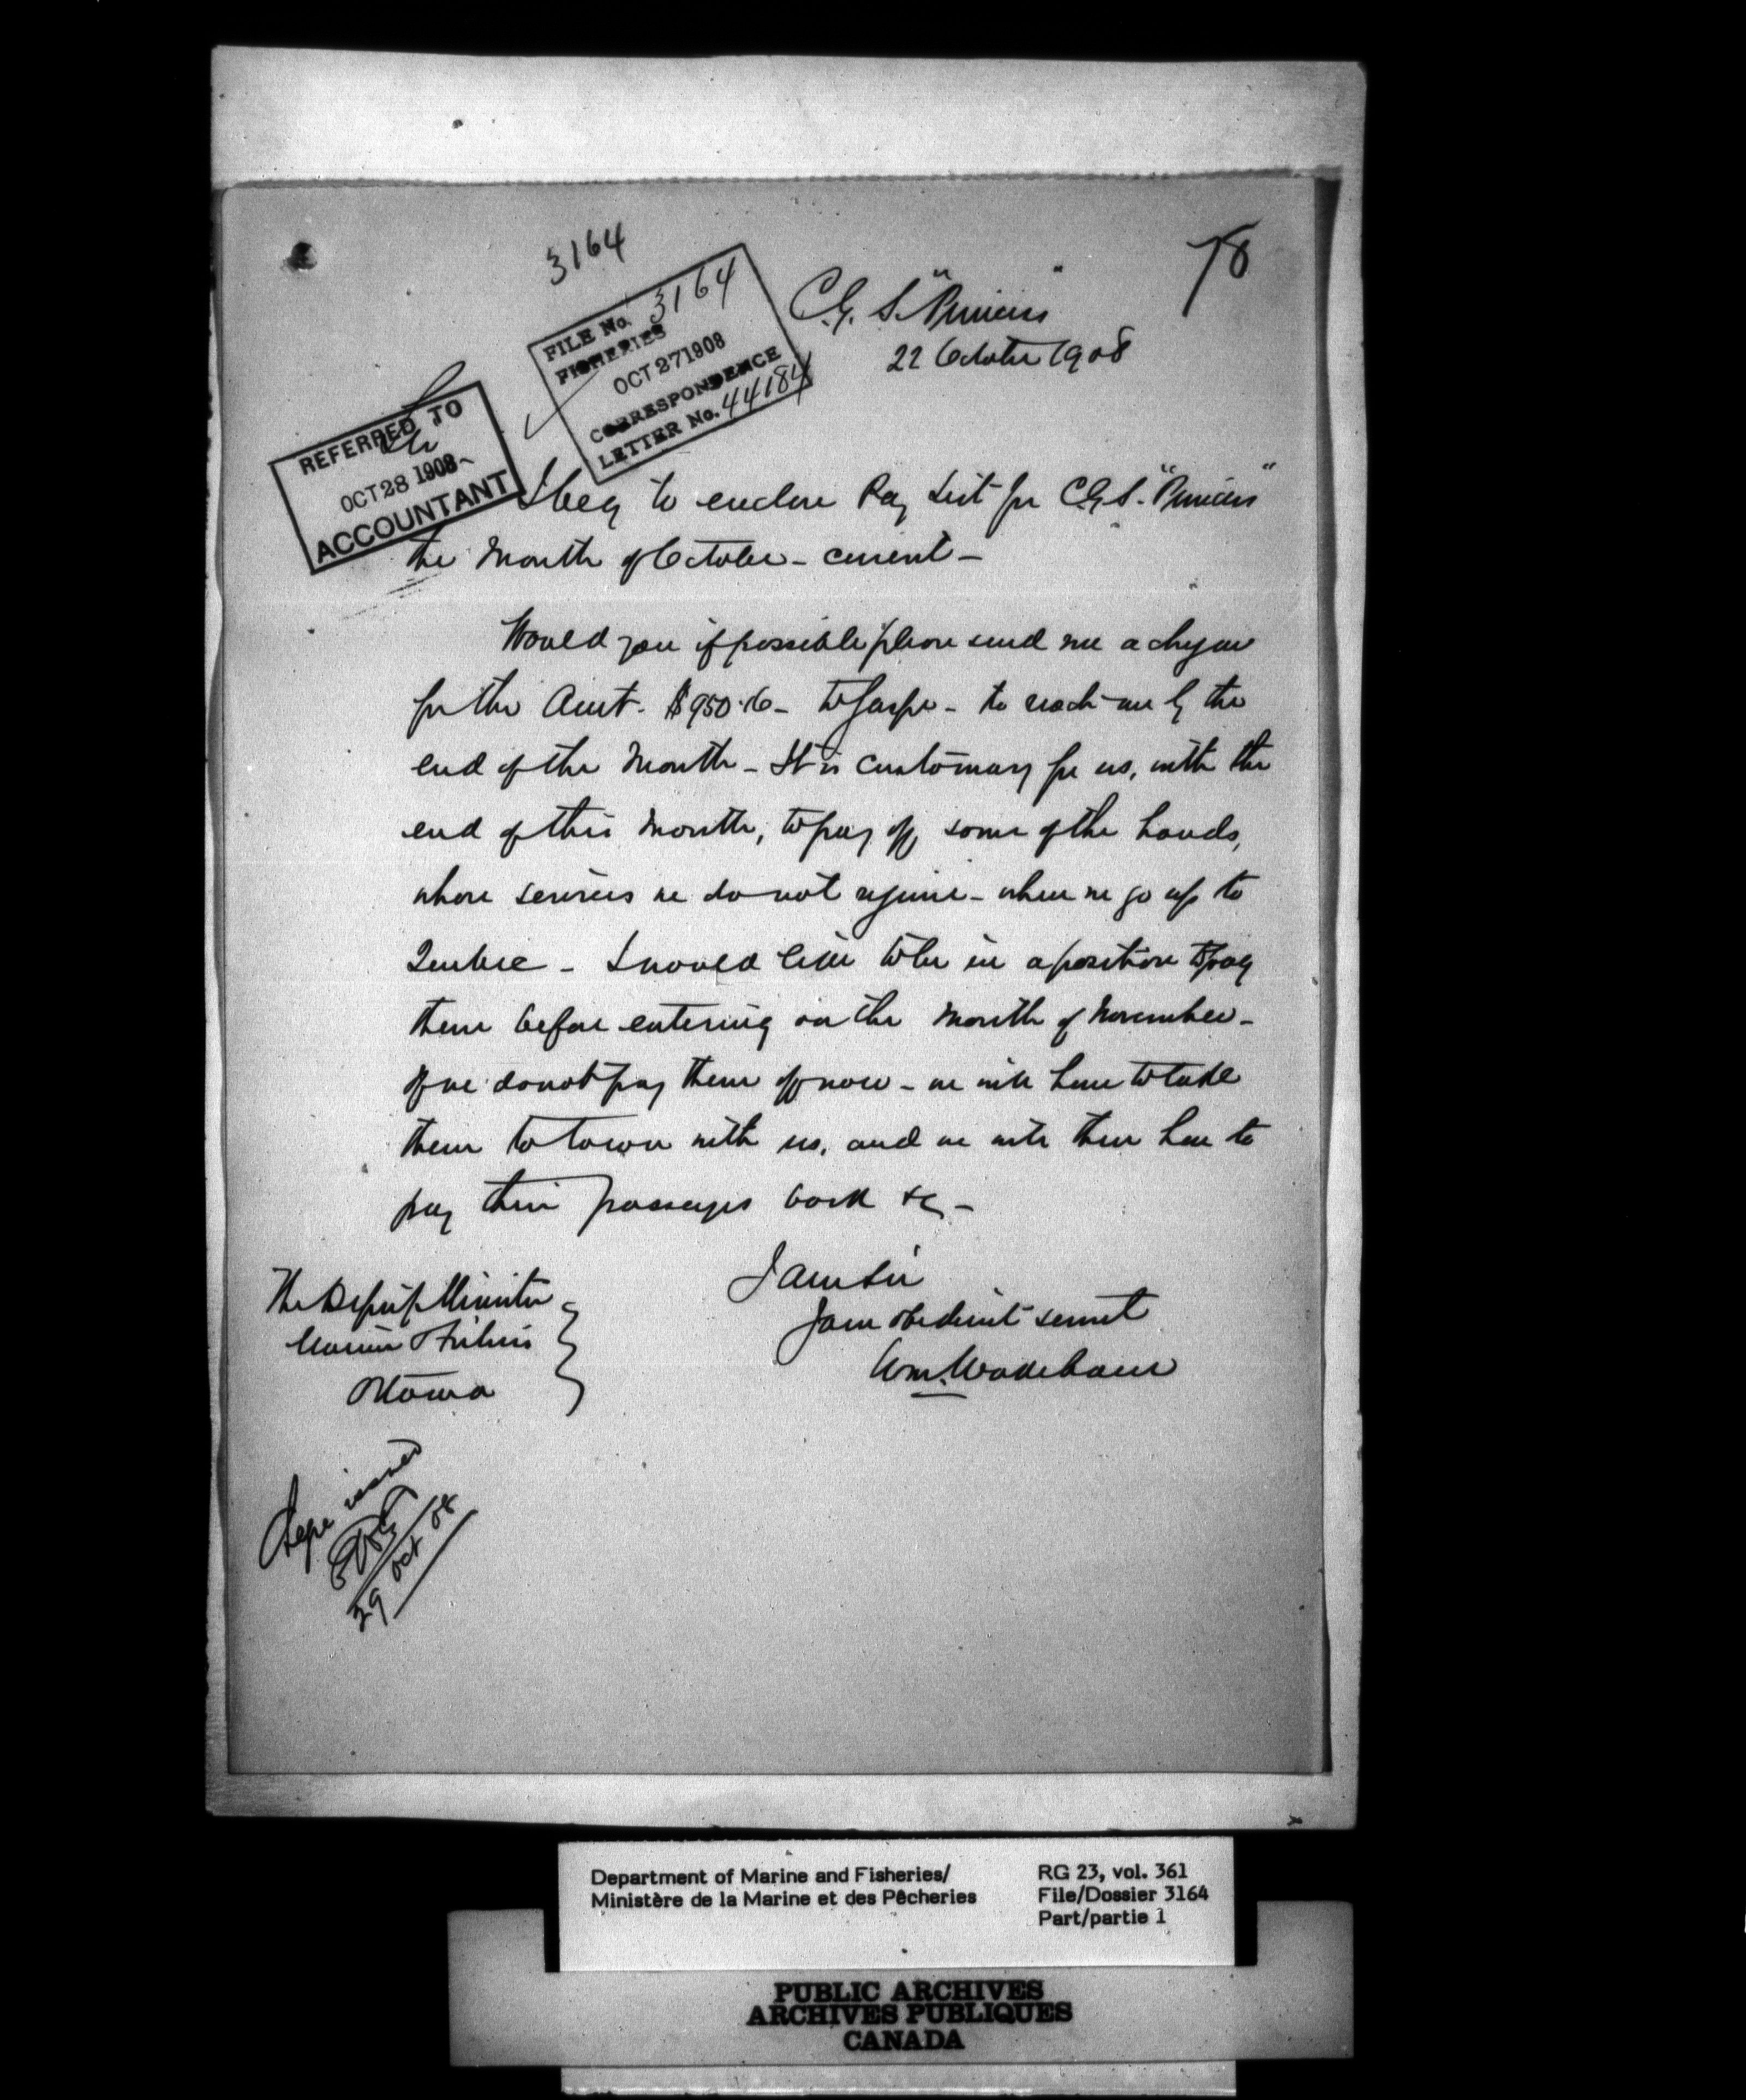 3164
78
FILE No. 3164
FISHERIES
OCT 27 1908
CORRESPONDENCE
LETTER No. 44184
C.G.S. "Princess"
22 October 1908
REFERRED TO
OCT 28 1908
ACCOUNTANT
I beg to enclose Pay List for C.G.S. "Princess"
the Month of October - current -
Would you if possible please send me a cheque
for the Amt. $950.16 - to Gaspe - to reach me by the
end of the Month - It is customary for us, with the
end of this Month, to pay off some of the hands,
whose services we do not require - when we go up to
Quebec - I would like to be in a position to pay
them before entering on the Month of November -
If we do not pay them off now - we will have to take
them to town with us, and we will then have to
pay their passages back &c -
I am Sir
Your obedient servant
Wm. Wakeham
The Deputy Minister
Marine & Fisheries
Ottawa
Cheque issued
29 Oct 08
Department of Marine and Fisheries/
Ministère de la Marine et des Pêcheries
RG 23, vol. 361
File/Dossier 3164
Part/partie 1
PUBLIC ARCHIVES
ARCHIVES PUBLIQUES
CANADA